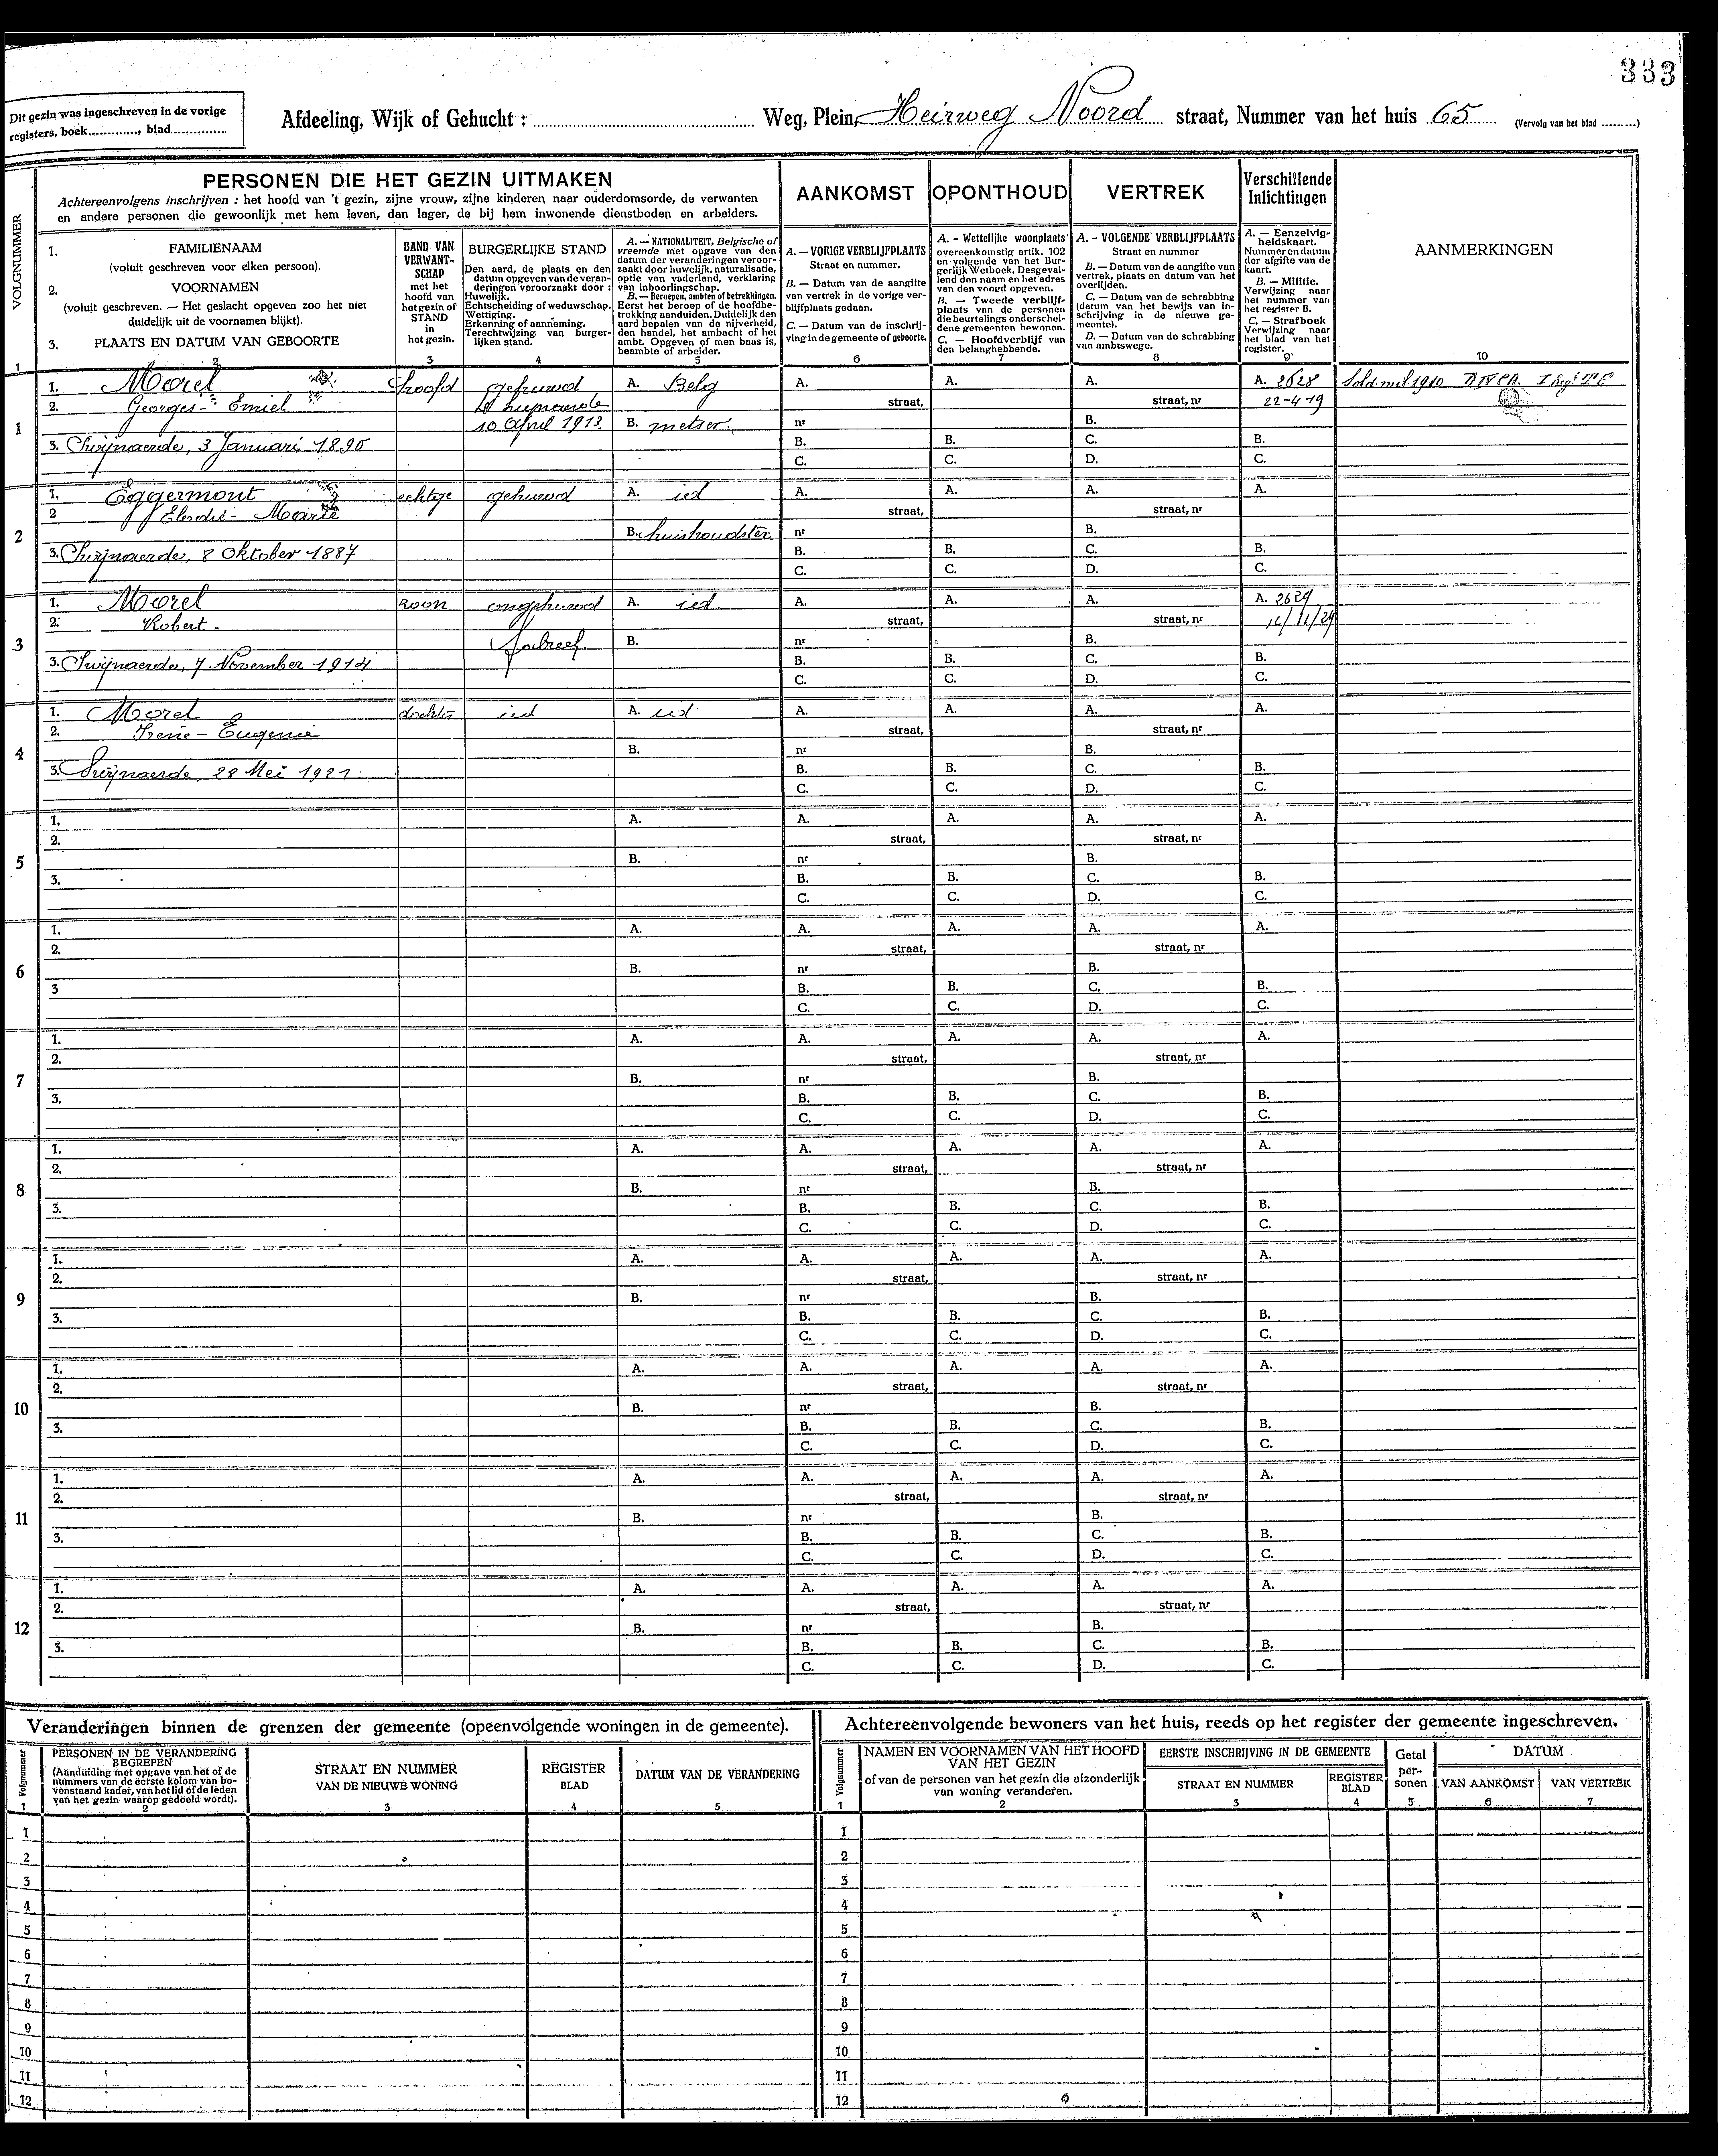 333
Dit gezin was ingeschreven in de vorige
registers, boek............., blad..............
Afdeeling, Wijk of Gehucht : ........ Weg, Plein, Heirweg Noord straat, Nummer van het huis 65 (Vervolg van het blad .........)
VOLGNUMMER
PERSONEN DIE HET GEZIN UITMAKEN
Achtereenvolgens inschrijven : het hoofd van 't gezin, zijne vrouw, zijne kinderen naar ouderdomsorde, de verwanten
en andere personen die gewoonlijk met hem leven, dan lager, de bij hem inwonende dienstboden en arbeiders.
AANKOMST
OPONTHOUD
VERTREK
Verschillende
Inlichtingen
AANMERKINGEN
1. FAMILIENAAM
(voluit geschreven voor elken persoon).
2. VOORNAMEN
(voluit geschreven. — Het geslacht opgeven zoo het niet
duidelijk uit de voornamen blijkt).
3. PLAATS EN DATUM VAN GEBOORTE
2
BAND VAN
VERWANT-
SCHAP
met het
hoofd van
het gezin of
STAND
in
het gezin.
3
BURGERLIJKE STAND
Den aard, de plaats en den
datum opgeven van de veran-
deringen veroorzaakt door :
Huwelijk.
Echtscheiding of weduwschap.
Wettiging.
Erkenning of aanneming.
Terechtwijzing van burger-
lijken stand.
4
A. — NATIONALITEIT. Belgische of
vreemde met opgave van den
datum der veranderingen veroor-
zaakt door huwelijk, naturalisatie,
optie van vaderland, verklaring
van inboorlingschap.
B. — Beroepen, ambten of betrekkingen.
Eerst het beroep of de hoofdbe-
trekking aanduiden. Duidelijk den
aard bepalen van de nijverheid,
den handel, het ambacht of het
ambt. Opgeven of men baas is,
beambte of arbeider.
5
A. — VORIGE VERBLIJFPLAATS
Straat en nummer.
B. — Datum van de aangifte
van vertrek in de vorige ver-
blijfplaats gedaan.
C. — Datum van de inschrij-
ving in de gemeente of geboorte.
6
A. - Wettelijke woonplaats
overeenkomstig artik. 102
en volgende van het Bur-
gerlijk Wetboek. Desgeval-
lend den naam en het adres
van den voogd opgeven.
B. — Tweede verblijf-
plaats van de personen
die beurtelings onderschei-
dene gemeenten bewonen.
C. — Hoofdverblijf van
den belanghebbende.
7
A. - VOLGENDE VERBLIJFPLAATS
Straat en nummer
B. — Datum van de aangifte van
vertrek, plaats en datum van het
overlijden.
C. — Datum van de schrabbing
(datum van het bewijs van in-
schrijving in de nieuwe ge-
meente).
D. — Datum van de schrabbing
van ambtswege.
8
A. — Eenzelvig-
heidskaart.
Nummer en datum
der afgifte van de
kaart.
B. — Militie.
Verwijzing naar
het nummer van
het register B.
C. — Strafboek
Verwijzing naar
het blad van het
register.
9
10
1
1. Morel hoofd gehuwd A. Belg A. A. A. A. 2628 Sold. mil. 1910
2. Georges - Emiel straat, straat, nr 22-4-19
1 10 april 1913. B. metser. nr B.
3. Swijnaerde, 3 Januari 1890 B. B. C. B.
C. C. D. C.
1. Eggermont echtge gehuwd A. id A. A. A. A.
2 Elodie - Marie straat, straat, nr
2 B. huishoudster nr B.
3. Swijnaerde, 8 Oktober 1887 B. B. C. B.
C. C. D. C.
1. Morel zoon ongehuwd A. id. A. A. A. A. 2629
2. Robert - straat, straat, nr
3 B. nr B.
3. Swijnaerde, 7 November 1914 B. B. C. B.
C. C. D. C.
1. Morel dochter id A. id A. A. A. A.
2. Irene - Eugenie straat, straat, nr
4 B. nr B.
3. Swijnaerde, 28 Mei 1921. B. B. C. B.
C. C. D. C.
1. A. A. A. A. A.
2. straat, straat, nr
5 B. nr B.
3. B. B. C. B.
C. C. D. C.
1. A. A. A. A. A.
2. straat, straat, nr
6 B. nr B.
3 B. B. C. B.
C. C. D. C.
1. A. A. A. A. A.
2. straat, straat, nr
7 B. nr B.
3. B. B. C. B.
C. C. D. C.
1. A. A. A. A. A.
2. straat, straat, nr
8 B. nr B.
3. B. B. C. B.
C. C. D. C.
1. A. A. A. A. A.
2. straat, straat, nr
9 B. nr B.
3. B. B. C. B.
C. C. D. C.
1. A. A. A. A. A.
2. straat, straat, nr
10 B. nr B.
3. B. B. C. B.
C. C. D. C.
1. A. A. A. A. A.
2. straat, straat, nr
11 B. nr B.
3. B. B. C. B.
C. C. D. C.
1. A. A. A. A. A.
2. straat, straat, nr
12 B. nr B.
3. B. B. C. B.
C. C. D. C.
Veranderingen binnen de grenzen der gemeente (opeenvolgende woningen in de gemeente).
Volgnummer
1
PERSONEN IN DE VERANDERING
BEGREPEN
(Aanduiding met opgave van het of de
nummers van de eerste kolom van bo-
venstaand kader, van het lid of de leden
van het gezin waarop gedoeld wordt).
2
STRAAT EN NUMMER
VAN DE NIEUWE WONING
3
REGISTER
BLAD
4
DATUM VAN DE VERANDERING
5
1
2
3
4
5
6
7
8
9
10
11
12
Achtereenvolgende bewoners van het huis, reeds op het register der gemeente ingeschreven.
Volgnummer
1
NAMEN EN VOORNAMEN VAN HET HOOFD
VAN HET GEZIN
of van de personen van het gezin die afzonderlijk
van woning veranderen.
2
EERSTE INSCHRIJVING IN DE GEMEENTE
STRAAT EN NUMMER
3
REGISTER
BLAD
4
Getal
per-
sonen
5
DATUM
VAN AANKOMST
6
VAN VERTREK
7
1
2
3
4
5
6
7
8
9
10
11
12